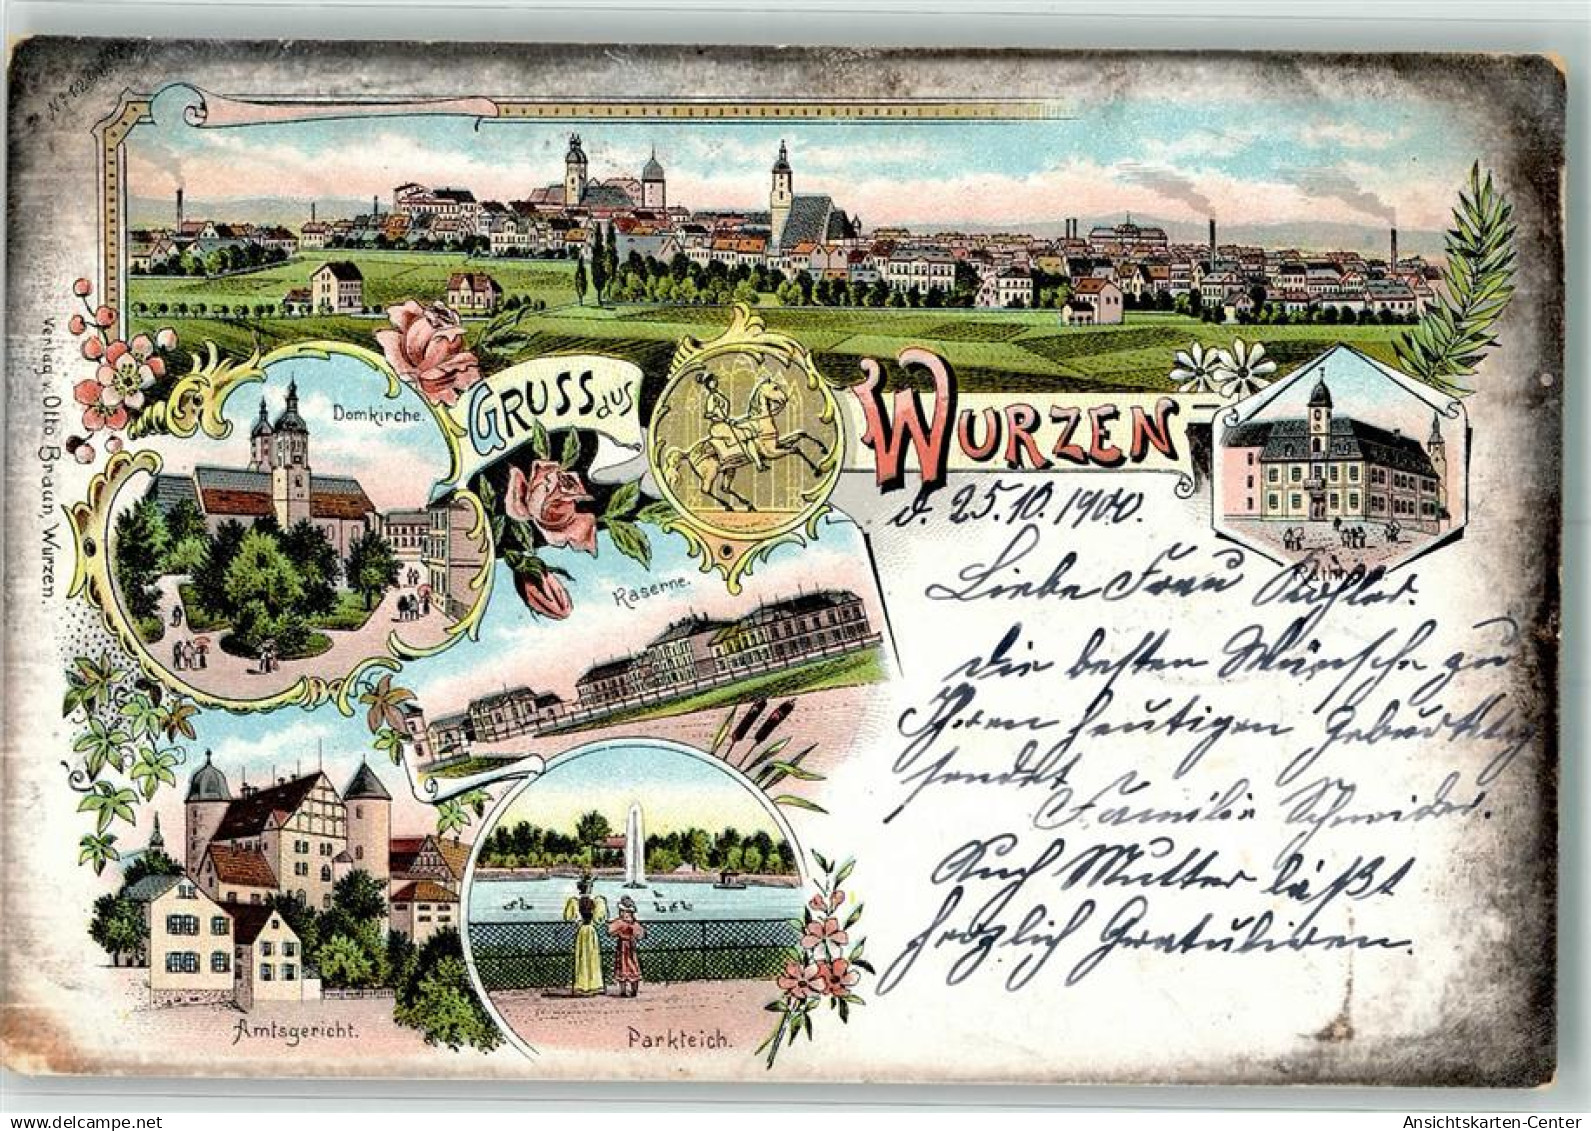 Verlag v. Otto Braun, Wurzen.
Domkirche.
GRUSS aus
WURZEN
d. 25.10.1900.
Liebe Frau
die besten Wünsche zu
Ihrem heutigen Geburtstag
sendet
Familie Schneider.
Auch Mutter läßt
herzlich Gratulieren.
Kaserne.
Amtsgericht.
Parkteich.
Ansichtskarten-Center